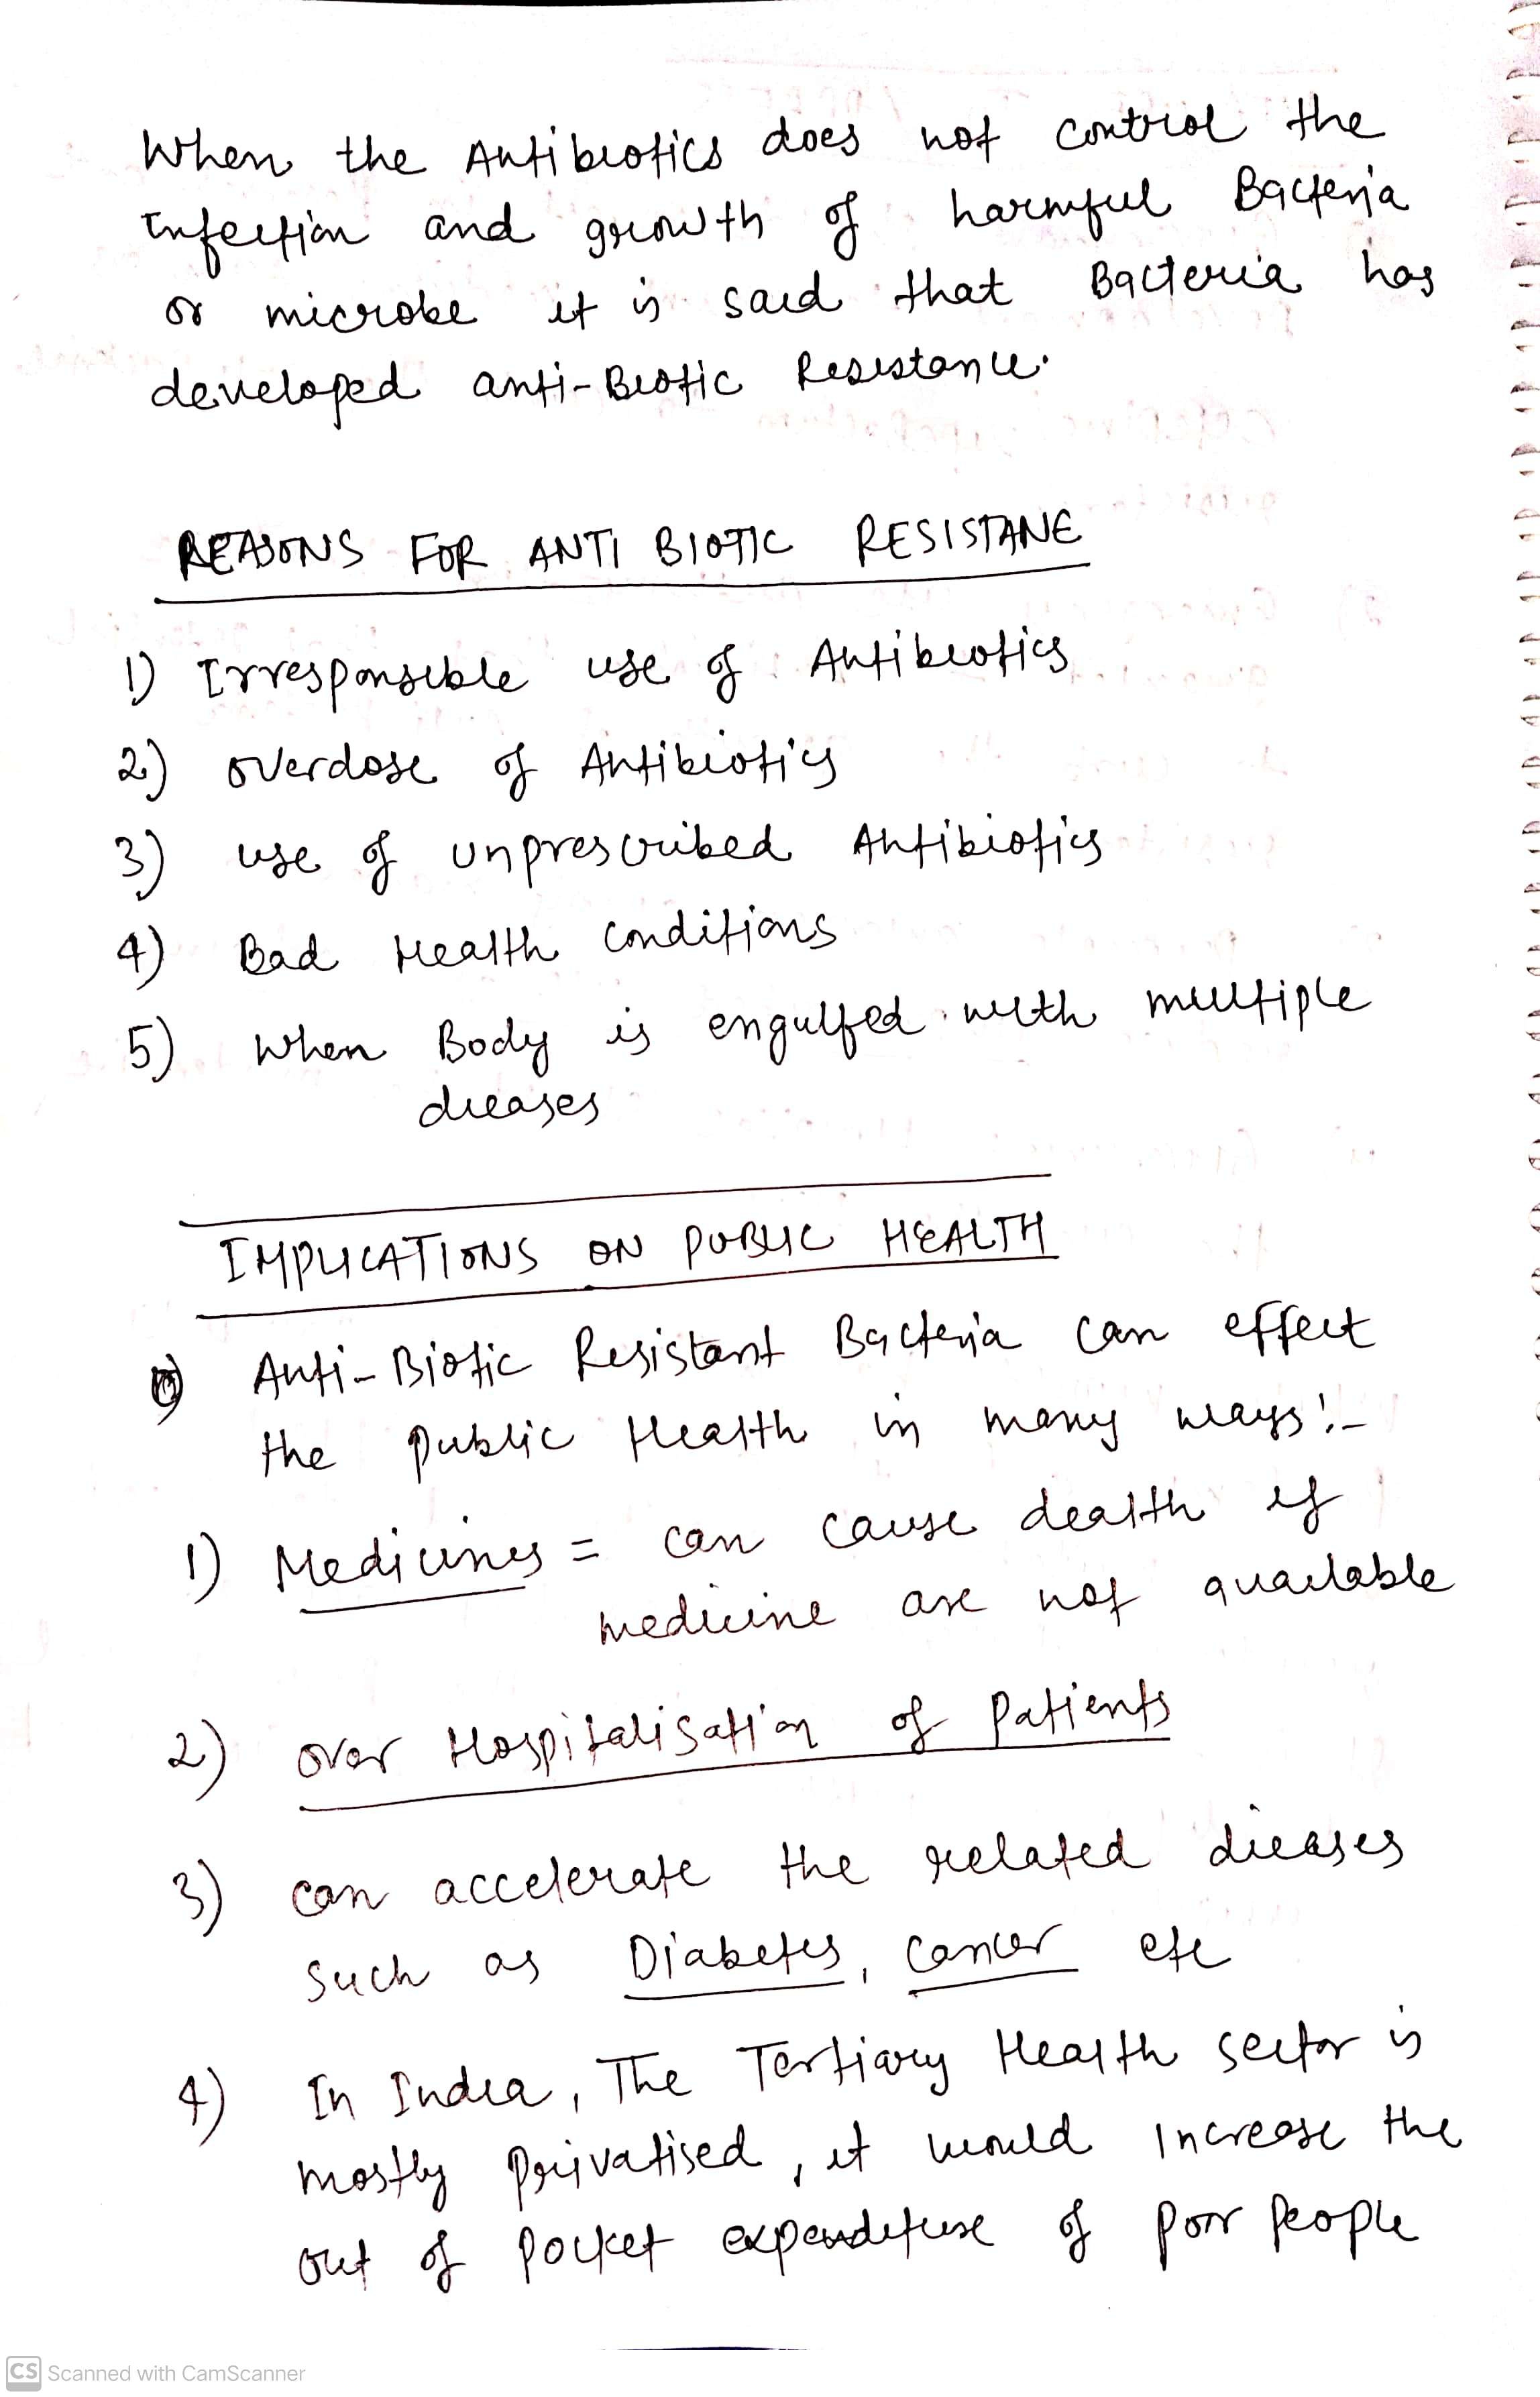 When the Antibiotics does not control the
Infection and growth of harmful Bacteria
or microbe it is said that Bacteria has
developed anti-Biotic Resistance.
REASONS FOR ANTI BIOTIC RESISTANE
1) Irresponsible use of Antibiotics
2) overdose of Antibiotics
3) use of unprescribed Antibiotics
4) Bad Health conditions
5) When Body is engulfed with multiple
dieases
IMPLICATIONS ON PUBLIC HEALTH
Anti-Biotic Resistant Bacteria can effect
the public Health in many ways:-
1) Medicines = can cause dealth if
medicine are not available
2) over Hospitalisation of Patients
3) can accelerate the related dieases
such as Diabetes, cancer etc
4) In India, The Tertiary Health sector is
mostly privatised, it would increase the
out of Pocket expenditure of poor People
CS Scanned with CamScanner